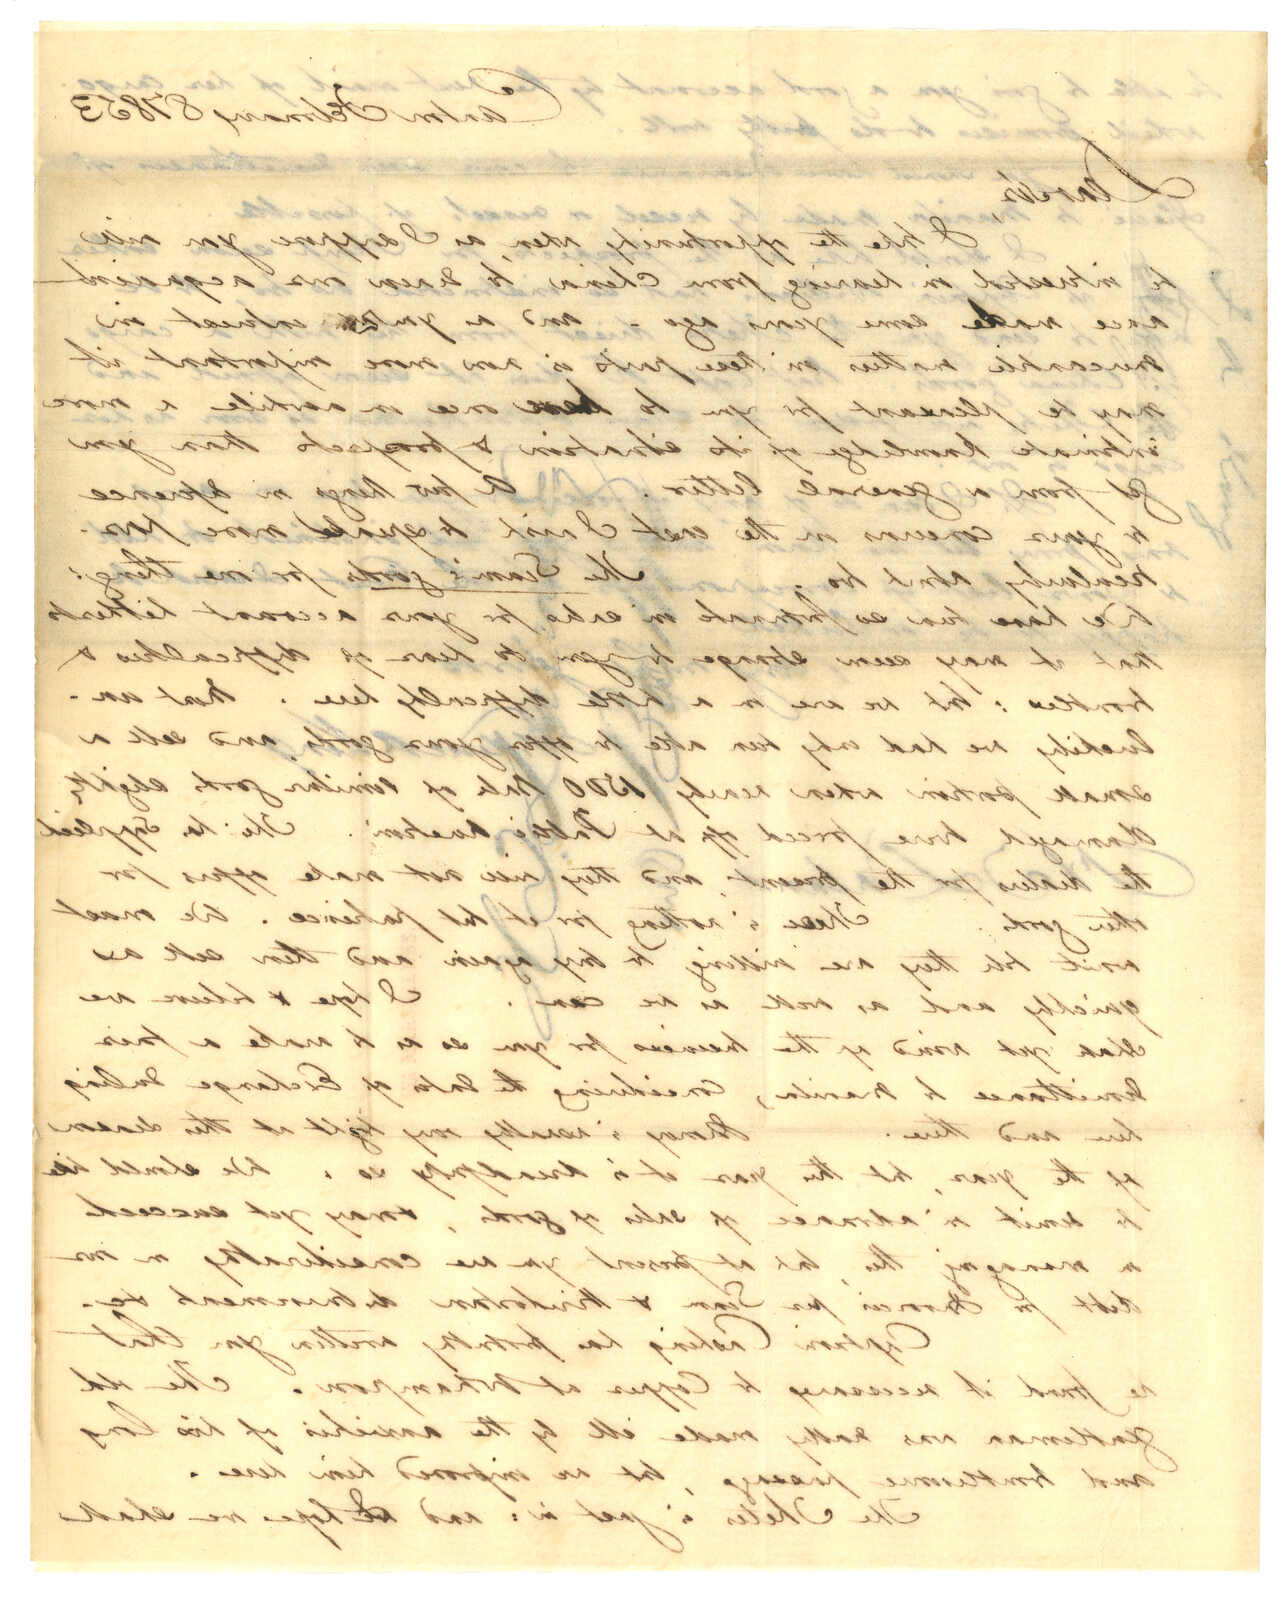 Canton February 8 1853
Dear Sir,
I take the opportunity when, as I suppose you will
be interested in hearing from China to renew our acquaint-
ance made some years ago - and as your interest in
mercantile matters in these parts is now more important it
may be pleasant for you to have once in awhile a more
intimate knowledge of its situation & prospects than you
get from a general letter. A few things in reference
to your concerns in the east I wish to speak more par-
ticularly about too. The Siam's goods for one thing:
We have been so fortunate in sales for your account hitherto
that it may seem strange to you to hear of difficulties &
troubles: but we are in a little difficulty here. That un-
luckily we had only been able to offer your goods, and sell a
small portion when nearly 1500 bales of similar goods slightly
damaged were forced off at Public Auction. The supplied
the dealers for the present, and they will not make offers for
other goods. There is nothing for it but patience. We must
wait till they are willing to buy again and then sell as
quickly and as well as we can. I hope & believe we
shall yet wind up the business for you so as to make a fair
remittance to Manila, considering the rates of Exchange ruling
here and there. Money is usually very tight at this season
of the year, but this year it is dreadfully so. We should like
to remit in advance of sales of goods, & may yet succeed
in managing this, but at present you are considerably in our
debt for advances for Siam & Hindostan disbursements &c.
Captain Cushing has probably written you that
he found it necessary to Copper at Whampoa. The old
gentleman was really made ill by the anxieties of his long
and troublesome passage, but we improved him here.
The Thetis is just in: and I hope we shall